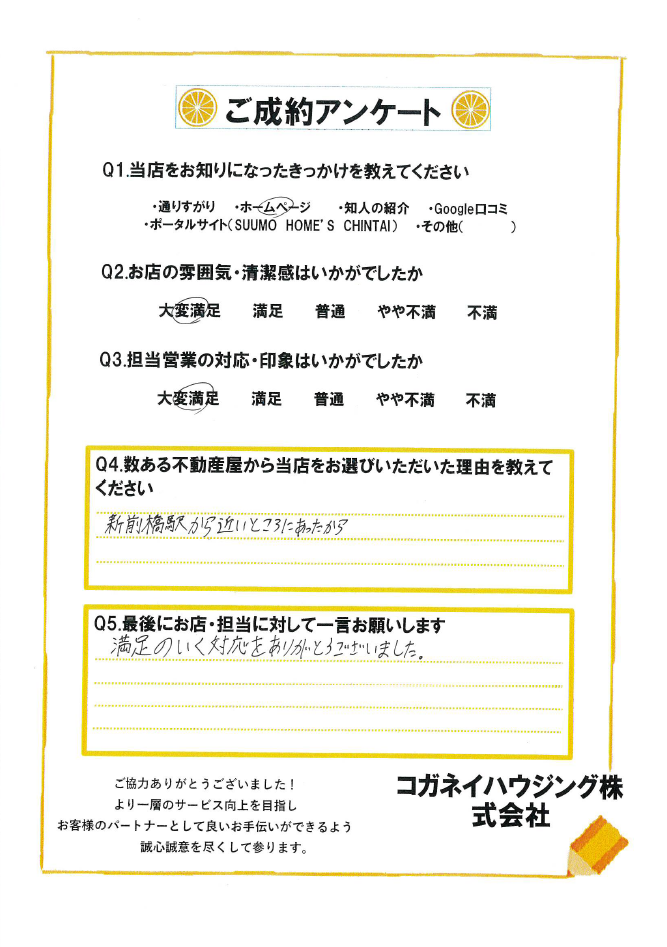 ご成約アンケート
Q1.当店をお知りになったきっかけを教えてください
・通りすがり ・ホームページ ・知人の紹介 ・Google口コミ
・ポータルサイト(SUUMO HOME'S CHINTAI) ・その他( )
Q2.お店の雰囲気・清潔感はいかがでしたか
大変満足 満足 普通 やや不満 不満
Q3.担当営業の対応・印象はいかがでしたか
大変満足 満足 普通 やや不満 不満
Q4.数ある不動産屋から当店をお選びいただいた理由を教えて
ください
新前橋駅から近いところにあったから
Q5.最後にお店・担当に対して一言お願いします
満足のいく対応をありがとうございました。
ご協力ありがとうございました!
より一層のサービス向上を目指し
お客様のパートナーとして良いお手伝いができるよう
誠心誠意を尽くして参ります。
コガネイハウジング株
式会社